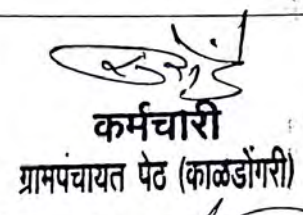 कर्मचारी
ग्रामपंचायत पेठ (काळडोंगरी)